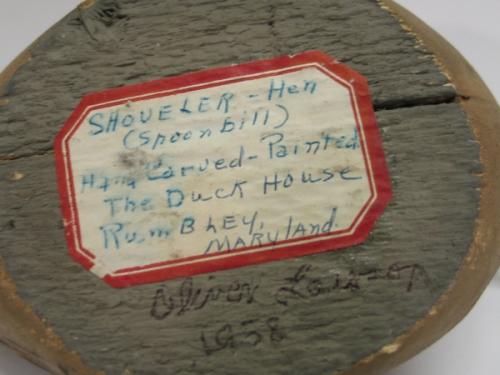 SHOVELER - Hen
(Spoon bill)
Hand Carved - Painted
The DUCK HOUSE
RumBLEY,
MARYLand.
Oliver Lawson
1958